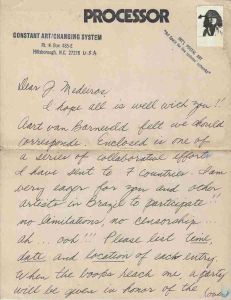 PROCESSOR
CONSTANT ART/CHANGING SYSTEM
Rt. 4 Box 485-E
Hillsborough, N.C. 27278 U-S-A
Dear J Medeiros
I hope all is well with you!!
Aart van Barneveld felt we should
corresponde. Enclosed is one of
a series of collaborative efforts
I have sent to 7 countries. I am
very eager for you and other
artists in Brazil to participate!!
no limitations, no censorship...
ah... ooh!!! Please list time,
date and location of each entry.
When the books reach me, a party
will be given in honor of the
(over)